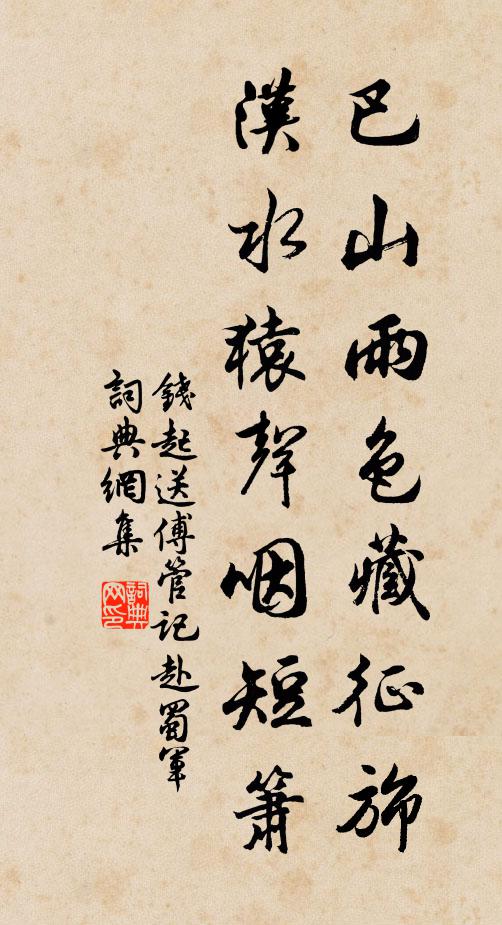 巴山雨色藏征旆
漢水猿聲咽短簫
錢起送傅管記赴蜀軍
詞典網集
詞典網印